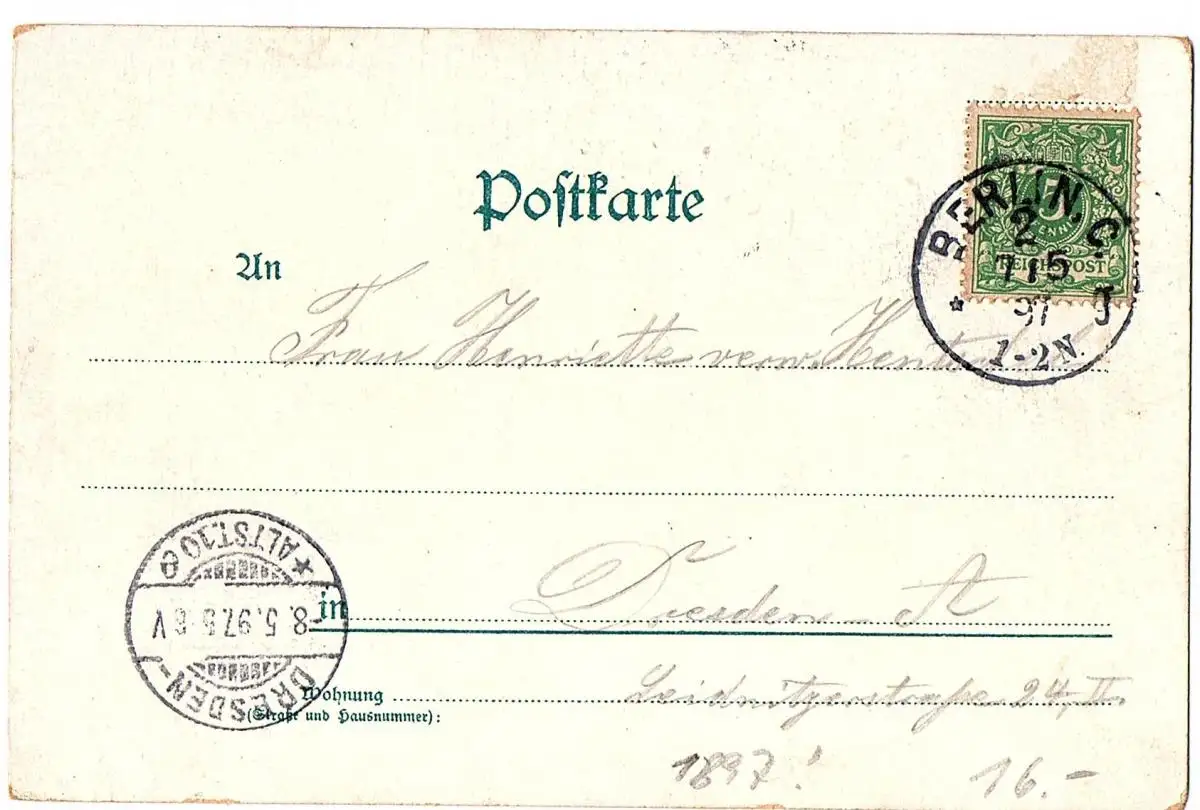 Postkarte
5
PFENNIG
REICHSPOST
BERLIN. C.
2
7 5
97 J
* 1-2N.
An
Frau Henriette verw.
in Dresden-A
Wohnung Leidnitzerstraße 24 II.
(Straße und Hausnummer):
DRESDEN-
8.5.97. 5-6V
* ALTST. 10 e
1897!
16.-